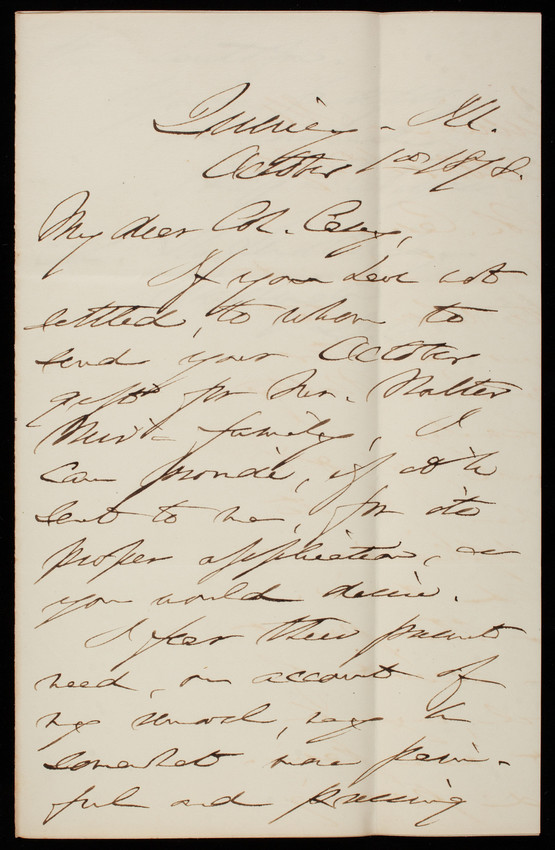 Quincy - Ill.
October 1st 1878.
My dear Col. Casey,
If you have not
settled, to whom to
send your October
gift for Mrs. Walter
family, I
can provide, if it is
sent to me, for its
proper application, as
you would desire.
I fear their present
need, on account of
my removal, may be
somewhat more pain-
ful and pressing